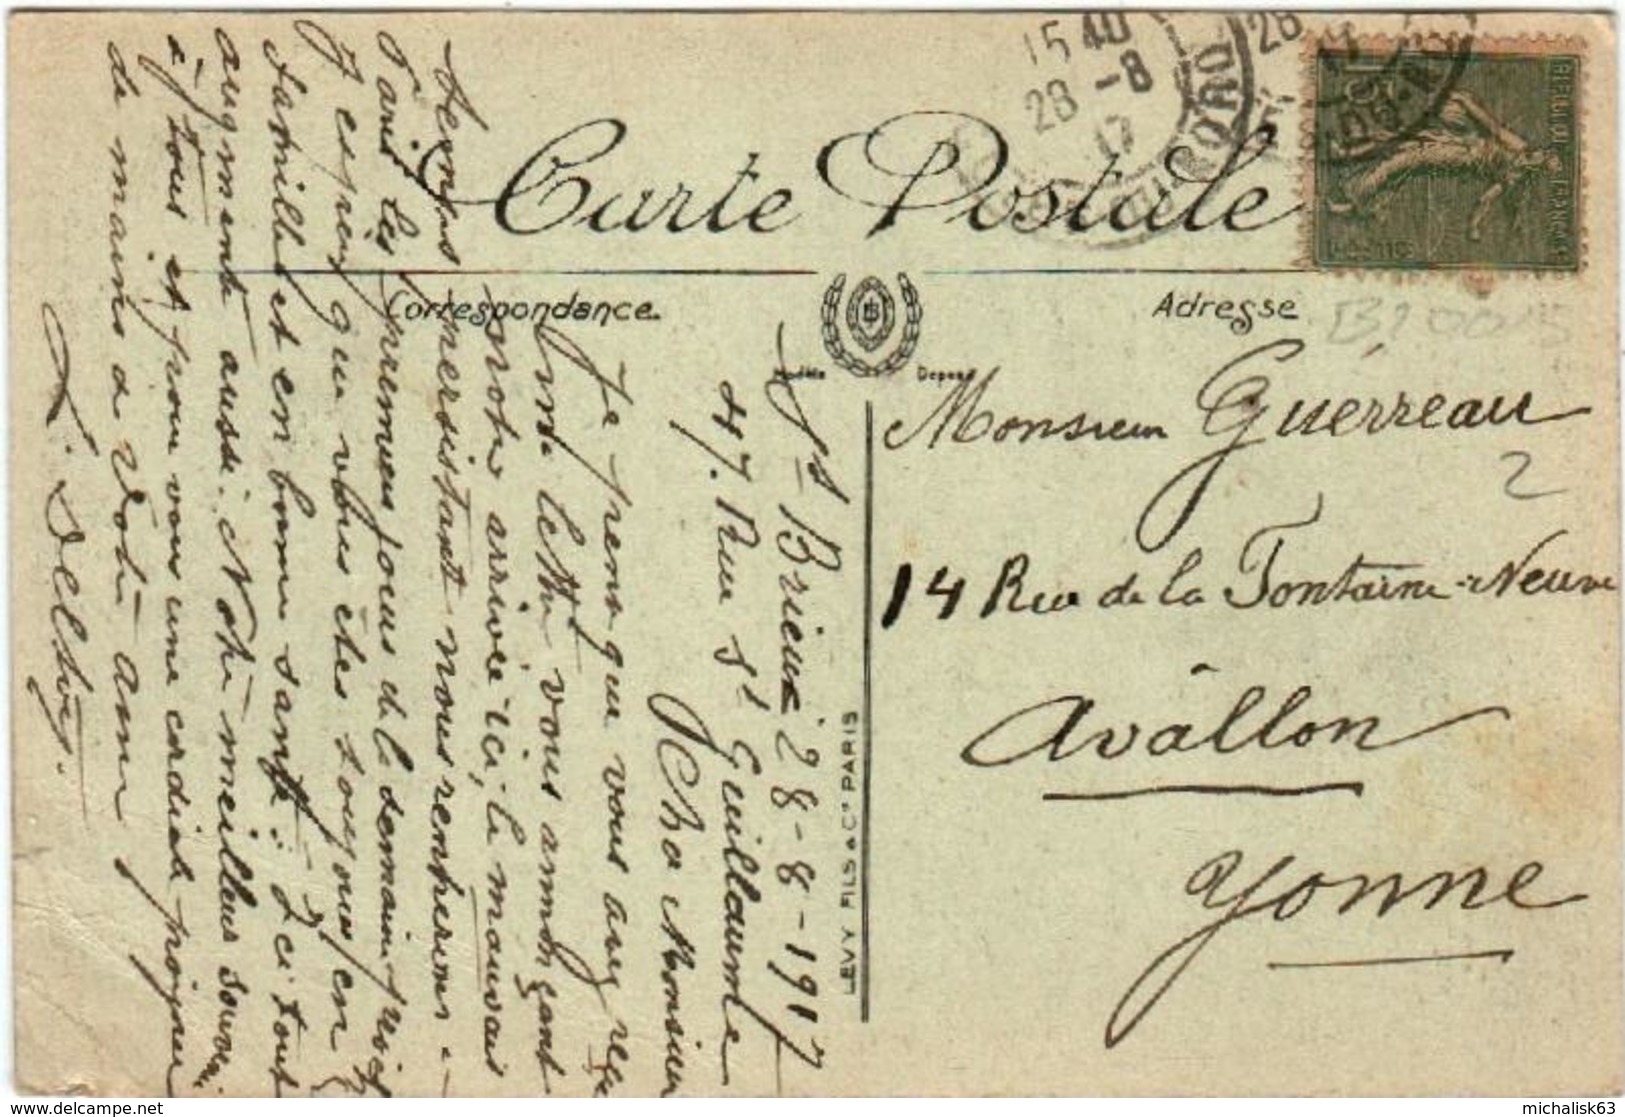 15 40
28 -8
17
28
Carte Postale
Correspondance
Adresse
Modèle Déposé
LÉVY FILS & Cie PARIS
Monsieur Guérreau
2
14 Rue de la Fontaine-Neuve
Avallon
Yonne
St Brieuc 28-8-1917
47. Rue St Guillaume
Cher Monsieur
Je pense que vous avez reçu
lettre vous annonçant
notre arrivée ici, le mauvais
temps persistant nous rentrerons à
Paris les premiers jours de la semaine proch
J'espère que vous êtes toujours en
famille et en bonne santé. Ici tout
augmente aussi. Notre meilleur souvenir
à tous et pour vous une cordiale poignée
de mains de votre ami
michalisk63
https://www.delcampe.net